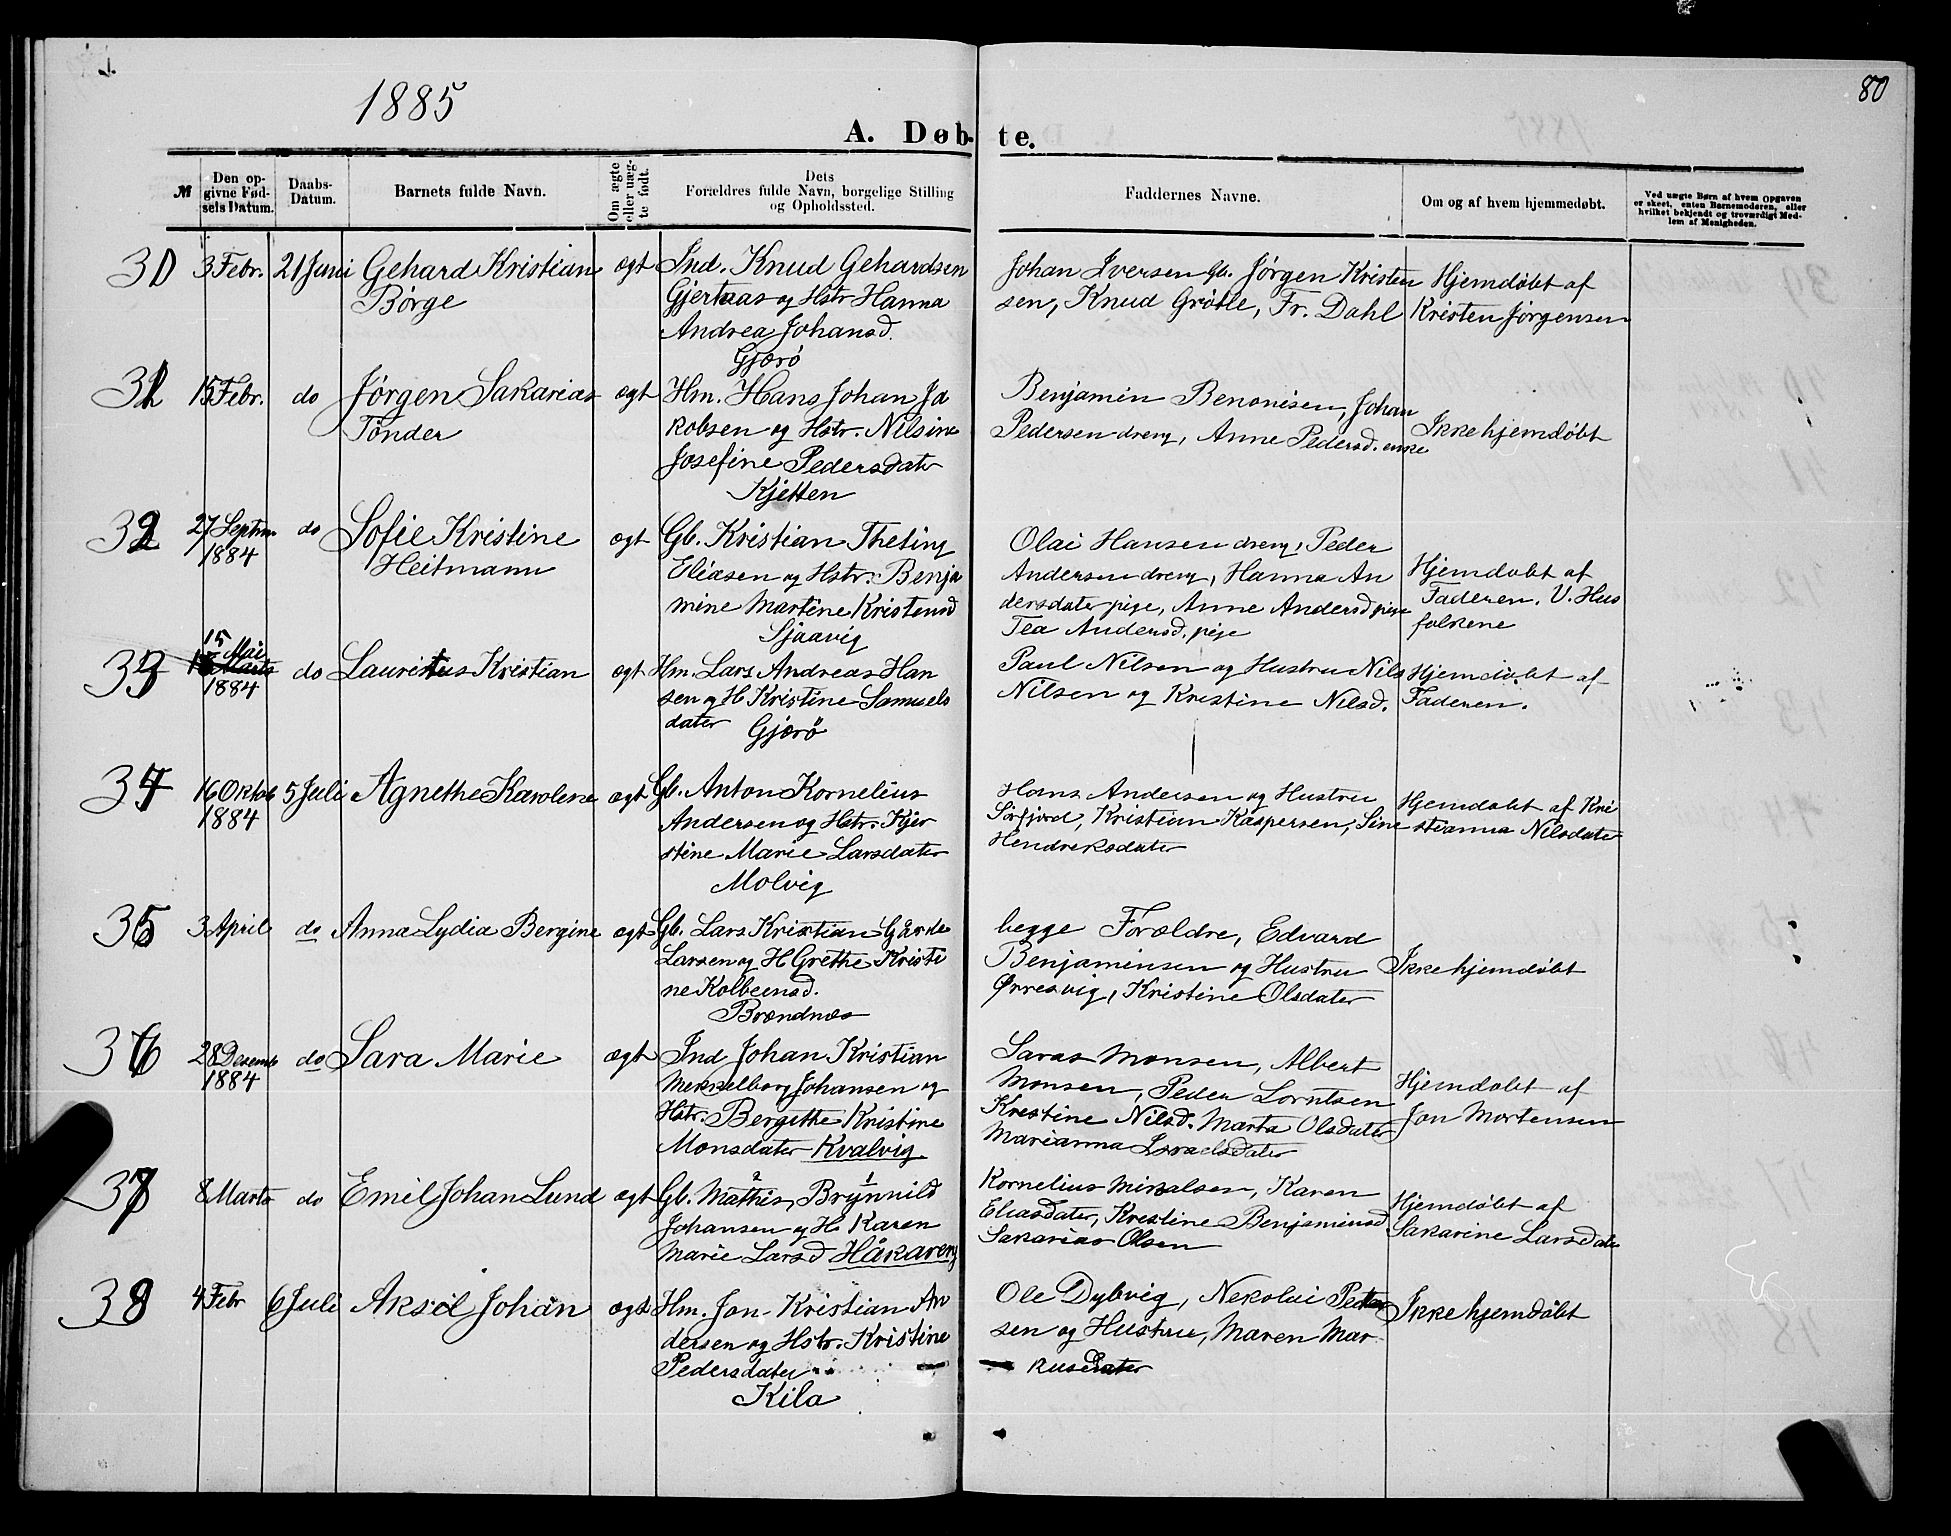 80
1885
A. Døbte.
№
Den opgivne Fødsels Datum.
Daabs-Datum.
Barnets fulde Navn.
Om ægte eller uægte født.
Dets Forældres fulde Navn, borgelige Stilling og Opholdssted.
Faddernes Navne.
Om og af hvem hjemmedøbt.
Ved uægte Børn af hvem Opgaven er skeet, enten Barnemoderen, eller hvilket bekjendt og troværdigt Medlem af Menigheden.
30
3 Febr.
21 Juni
Gehard Kristian
Børge
ægt
Ind. Knud Gehardsen
Gjertaas og Hstr Hanna
Andrea Johansd.
Gjærø
Johan Iversen Gb. Jørgen Kristen
sen, Knud Grøtle, Fr. Dahl
Hjemdøbt af
Kristen Jørgensen
31
15 Febr.
do
Jørgen Sakarias
Tønder
ægt
Hm. Hans Johan Ja
kobsen og Hstr. Nilsine
Josefine Pedersdater
Kjetten
Benjamin Benonisen, Johan
Pedersen dreng, Anne Pedersd. enke
Ikke hjemdøbt
32
27 Septm
1884
do
Sofie Kristine
Heitmann
ægt
Gb. Kristian Theting
Eliasen og Hstr. Benja
mine Martine Kristensd
Sjaavig
Olai Hansen dreng, Peder
Andersen dreng, Hanna An
dersdater pige, Anne Andersd pige
Tea Andersd. pige
Hjemdøbt af
Faderen. V. Hus
folkene
33
15 Mai
1884
do
Lauritus Kristian
ægt
Hm. Lars Andreas Han
sen og H Kristine Samuels
dater
Gjærø
Paul Nilsen og Hustru Nils
Nilsen og Kristine Nilsd.
Hjemdøbt af
Faderen.
34
16 Oktob
1884
5 Juli
Agnethe Karolene
ægt
Gb. Anton Kornelius
Andersen og Hstr. Kjer
stine Marie Larsdater
Molvig
Hans Andersen og Hustru
Sørfjord, Kristian Kaspersen, Sine
Hendreksdater
Hjemdøbt af Kri
stianna Nilsdater
35
3 April
do
Anna Lydia Bergine
ægt
Gb. Lars Kristian Gårde
Larsen og H Grethe Kristi
ne Kolbeinsd.
Brændnæs
begge Forældre, Edvard
Benjaminsen og Hustru
Ørresvig, Kristine Olsdater
Ikke hjemdøbt
36
28 Desemb
1884
do
Sara Marie
ægt
Ind Johan Kristian
Merkelborg Johansen og
Hstr. Bergithe Kristine
Monsdater Kvalvig
Saras Monsen, Albert
Monsen, Peder Lorntsen
Krestine Nilsd. Marta Olsdater
Marianna Israelsdater
Hjemdøbt af
Jon Mortensen
37
8 Marts
do
Emil Johan Lund
ægt
Gb. Mathis, Brynnild
Johansen og H. Karen
Marie Larsd Håkareng
Kornelius Mikalsen, Karen
Eliasdater, Krestine Benjaminsd
Sakarias Olsen
Hjemdøbt af
Sakarine Larsdate
38
4 Febr
6 Juli
Aksel Johan
ægt
Hm. Jon Kristian An
dersen og Hstr. Kristine
Pedersdater
Kila
Ole Dybvig, Nekolai Peder
sen og Hustru, Maren Mar
kusdater
Ikke hjemdøbt